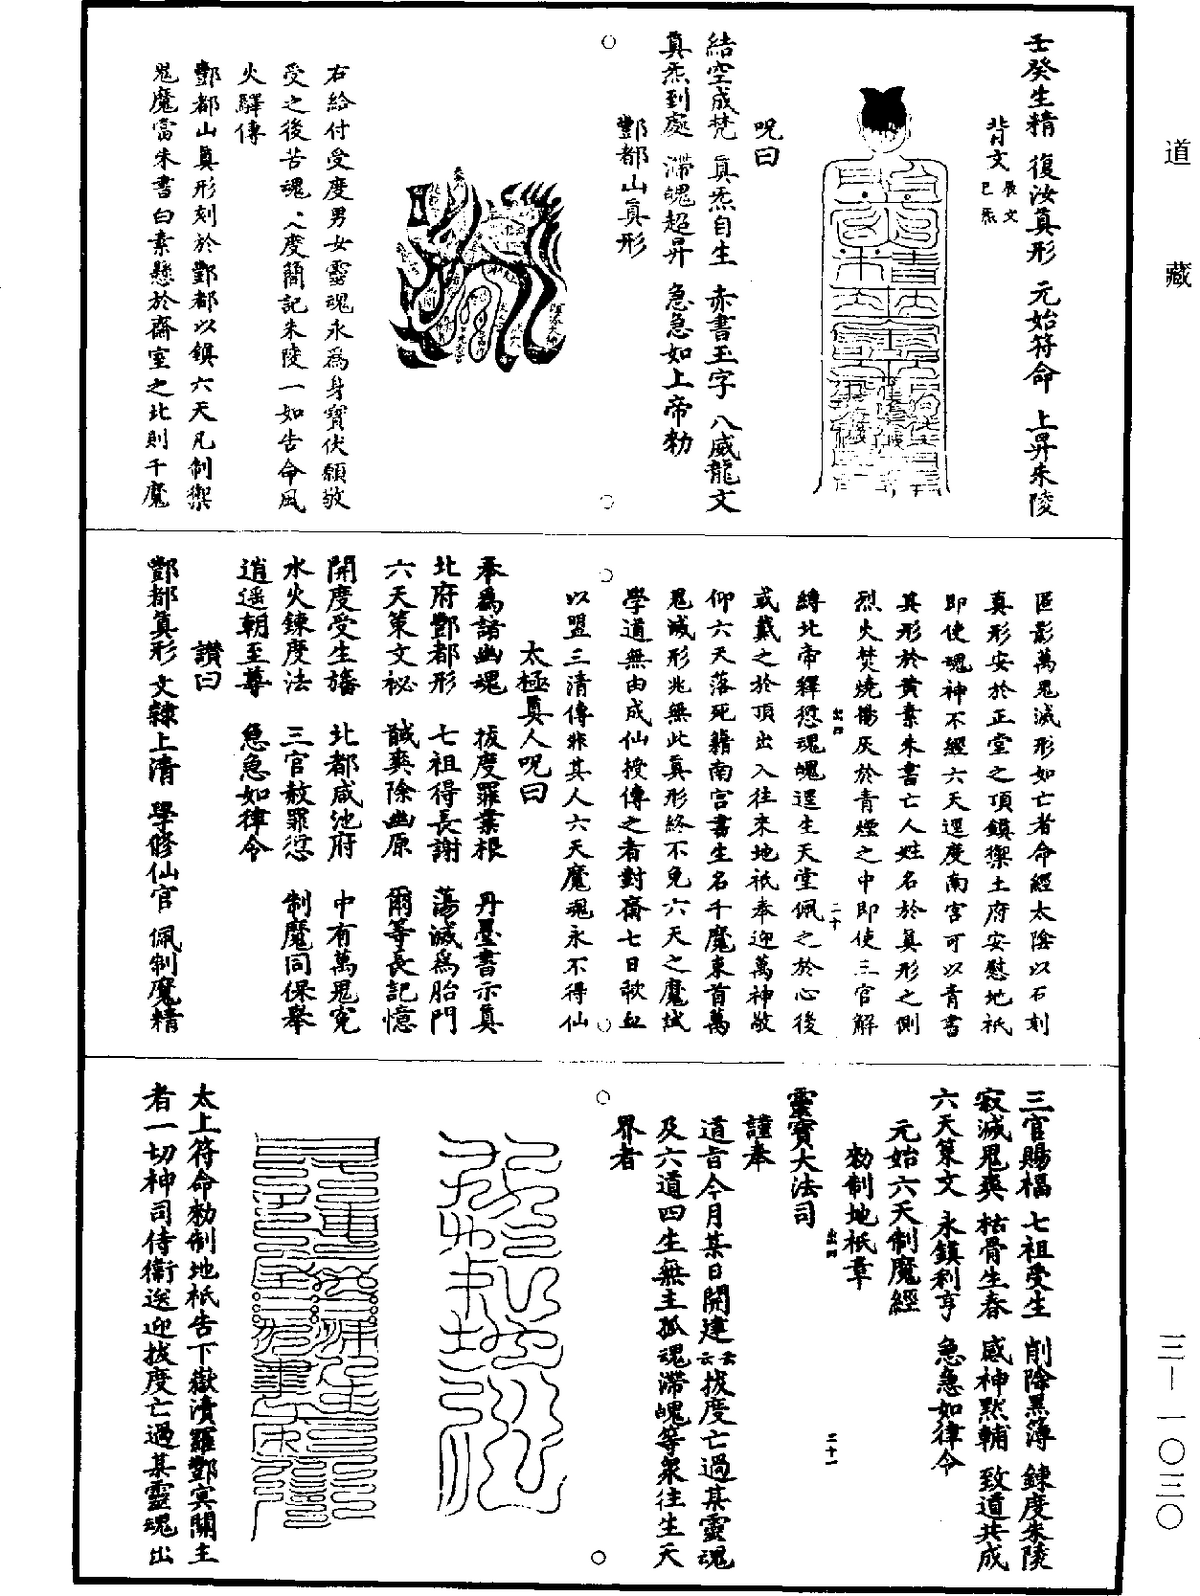 道藏
壬癸生精　復汝真形　元始符命　上昇朱陵
背文
辰文
巳炁
呪曰
結空成梵　真炁自生　赤書玉字　八威龍文
真炁到處　滯魄超昇　急急如上帝勑
酆都山真形
右給付受度男女靈魂永爲身寶伏願敬
受之後苦魂＜＜度簡記朱陵一如告命風
火驛傳
酆都山真形刻於酆都以鎮六天凡制禦
鬼魔當朱書白素懸於齋室之北則千魔
匿影萬鬼滅形如亡者命經太陰以石刻
真形安於正堂之頂鎮禦土府安慰地祇
即使魂神不經六天逕度南宮可以青書
其形於黃素朱書亡人姓名於真形之側
烈火焚燒揚灰於青煙之中即使三官解
縛北帝釋愆魂魄逕生天堂佩之於心後
或戴之於頂出入往來地祇奉迎萬神敬
仰六天落死籍南宮書生名千魔束首萬
鬼滅形兆無此真形終不免六天之魔試
學道無由成仙授傳之者對齋七日歃血
以盟三清傳非其人六天魔魂永不得仙
太極真人呪曰
奉爲諸幽魂　拔度罪業根　丹墨書示真
北府酆都形　七祖得長謝　蕩滅爲胎門
六天策文祕　馘爽除幽原　爾等長記憶
開度受生旛　北都咸池府　中有萬鬼寃
水火鍊度法　三官赦罪愆　制魔同保舉
逍遥朝至尊　急急如律令
讚曰
酆都真形　文隸上清　學修仙官　佩制魔精
三官賜福　七祖受生　削除黑簿　鍊度朱陵
寂滅鬼爽　枯骨生春　感神默輔　致道共成
六天策文　永鎮利亨　急急如律令
元始六天制魔經
勑制地祇章
靈寶大法司
謹奉
道旨今月某日開建云云拔度亡過某靈魂
及六道四生無主孤魂滯魄等衆往生天
界者
太上符命勑制地祇告下嶽瀆羅酆冥關主
者一切神司侍衛送迎拔度亡過某靈魂出
三—一〇三〇